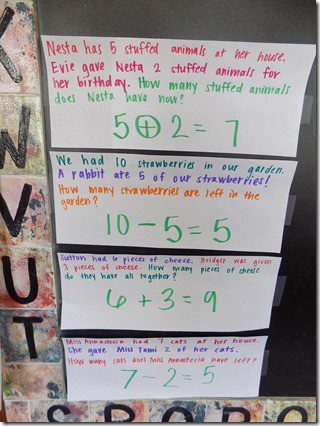 Nesta has 5 stuffed animals at her house.
Evie gave Nesta 2 stuffed animals for
her birthday. How many stuffed animals
does Nesta have now?
5 + 2 = 7
We had 10 strawberries in our garden.
A rabbit ate 5 of our strawberries!
How many strawberries are left in the
garden?
10 - 5 = 5
Sutton had 6 pieces of cheese. Bridger was given
3 pieces of cheese. How many pieces of cheese
do they have all together?
6 + 3 = 9
Miss Annastecia had 7 cats at her house.
She gave Miss Tami 2 of her cats.
How many cats does Miss Annastecia have left?
7 - 2 = 5
K
N
W
V
U
T
S
R
Q